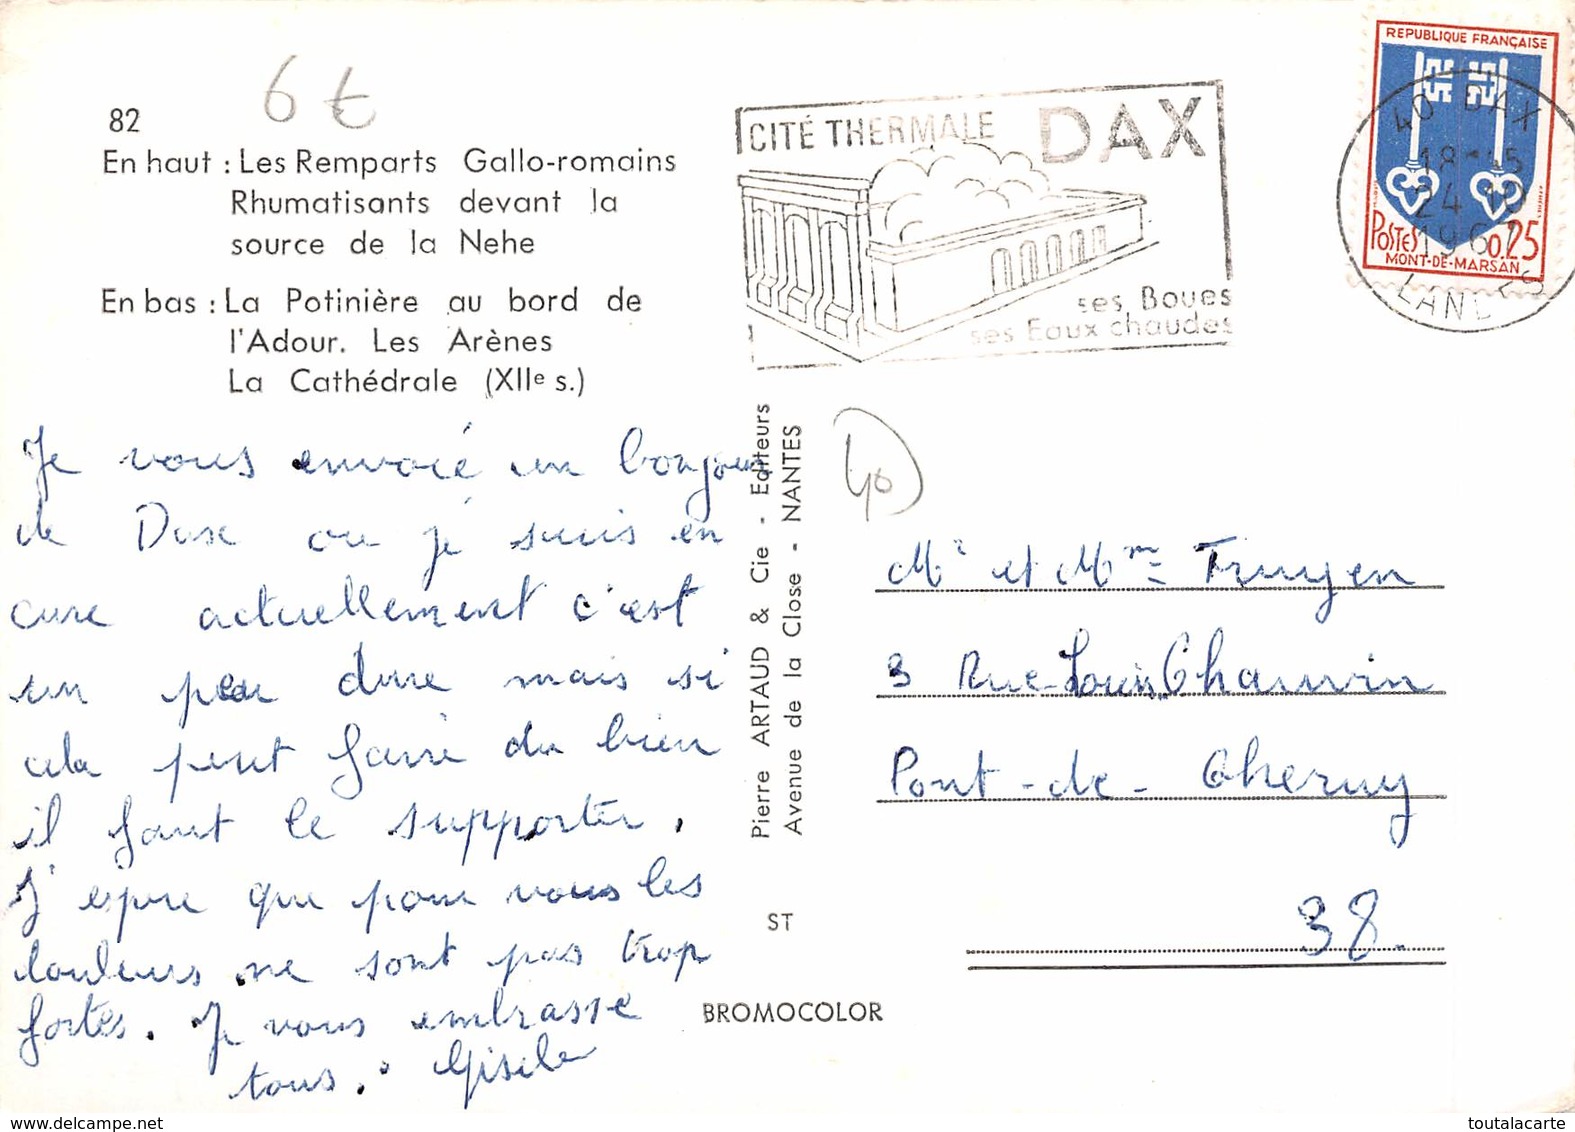 82
6 €
En haut : Les Remparts Gallo-romains
Rhumatisants devant la
source de la Nehe
En bas : La Potinière au bord de
l'Adour. Les Arènes
La Cathédrale (XIIe s.)
Je vous envoie un bonjour
de Dax ou je suis en
cure actuellement c'est
un peu dure mais si
cela peut faire du bien
il faut le supporter.
J'espere que pour vous les
douleurs ne sont pas trop
fortes. Je vous embrasse
tous. Gisele
Pierre ARTAUD & Cie - Editeurs
Avenue de la Close - NANTES
ST
BROMOCOLOR
CITÉ THERMALE DAX
ses Boues
ses Eaux chaudes
REPUBLIQUE FRANÇAISE
POSTES 0,25
MONT-DE-MARSAN
40 DAX
24 10
LANDES
40
Mr et Mme Truyen
3 Rue Louis Chauvin
Pont-de-Cheruy
38.
toutalacarte
www.delcampe.net